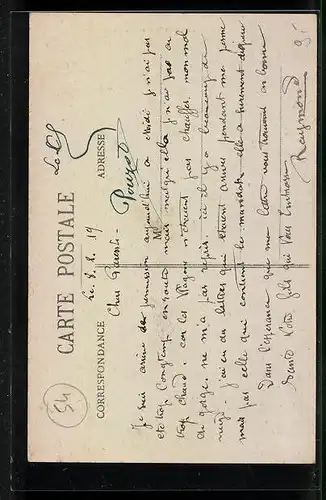 CARTE POSTALE
CORRESPONDANCE
ADRESSE
M
54
Le 8. 2. 19
Chers Parents
Je suis arrivé de permission aujourd'hui a midi je n'ai pas
été trop longtemp en route mais malgré cela je n'ai pas eu
trop chaud car les Wagons n'étaient pas chauffer, mon mal
de gorge ne m'a pas repris ici il y a beaucoup de
neige. j'ai eu des lettres qui étaient arrivé pendant ma perme
mais pas celle qui contient le mandat elle a surement disparu
Dans l'espérance que ma lettre vous trouvera en bonne
Santé Votre fils qui Vous Embrasse
Raymond